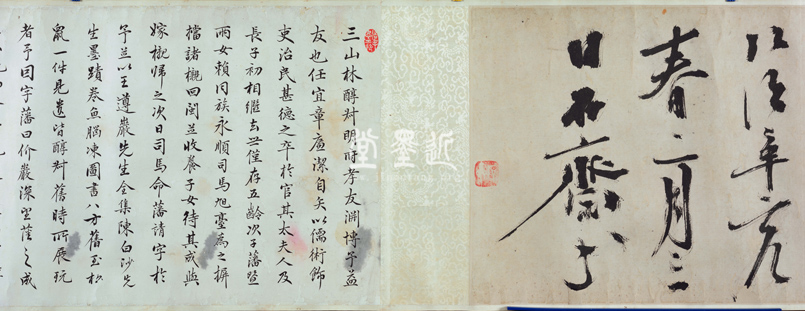 弘治辛亥
春二月三
日石齋書
三山林醇叔明時孝友淵博予益
友也任宜章廉潔自矢以儒術飾
吏治民甚德之卒於官其太夫人及
長子初相繼去世僅存五齡次子藩暨
兩女賴同族永順司馬旭臺為之摒
擋諸櫬回閩并收養子女待其成與
嫁櫬歸之次日司馬命藩請字於
予并以王遵巖先生全集陳白沙先
生墨蹟卷魚腦凍圖書八方舊玉松
鼠一件見遺皆醇叔舊時所展玩
者予因字藩曰价巖深望藩之成
近墨堂